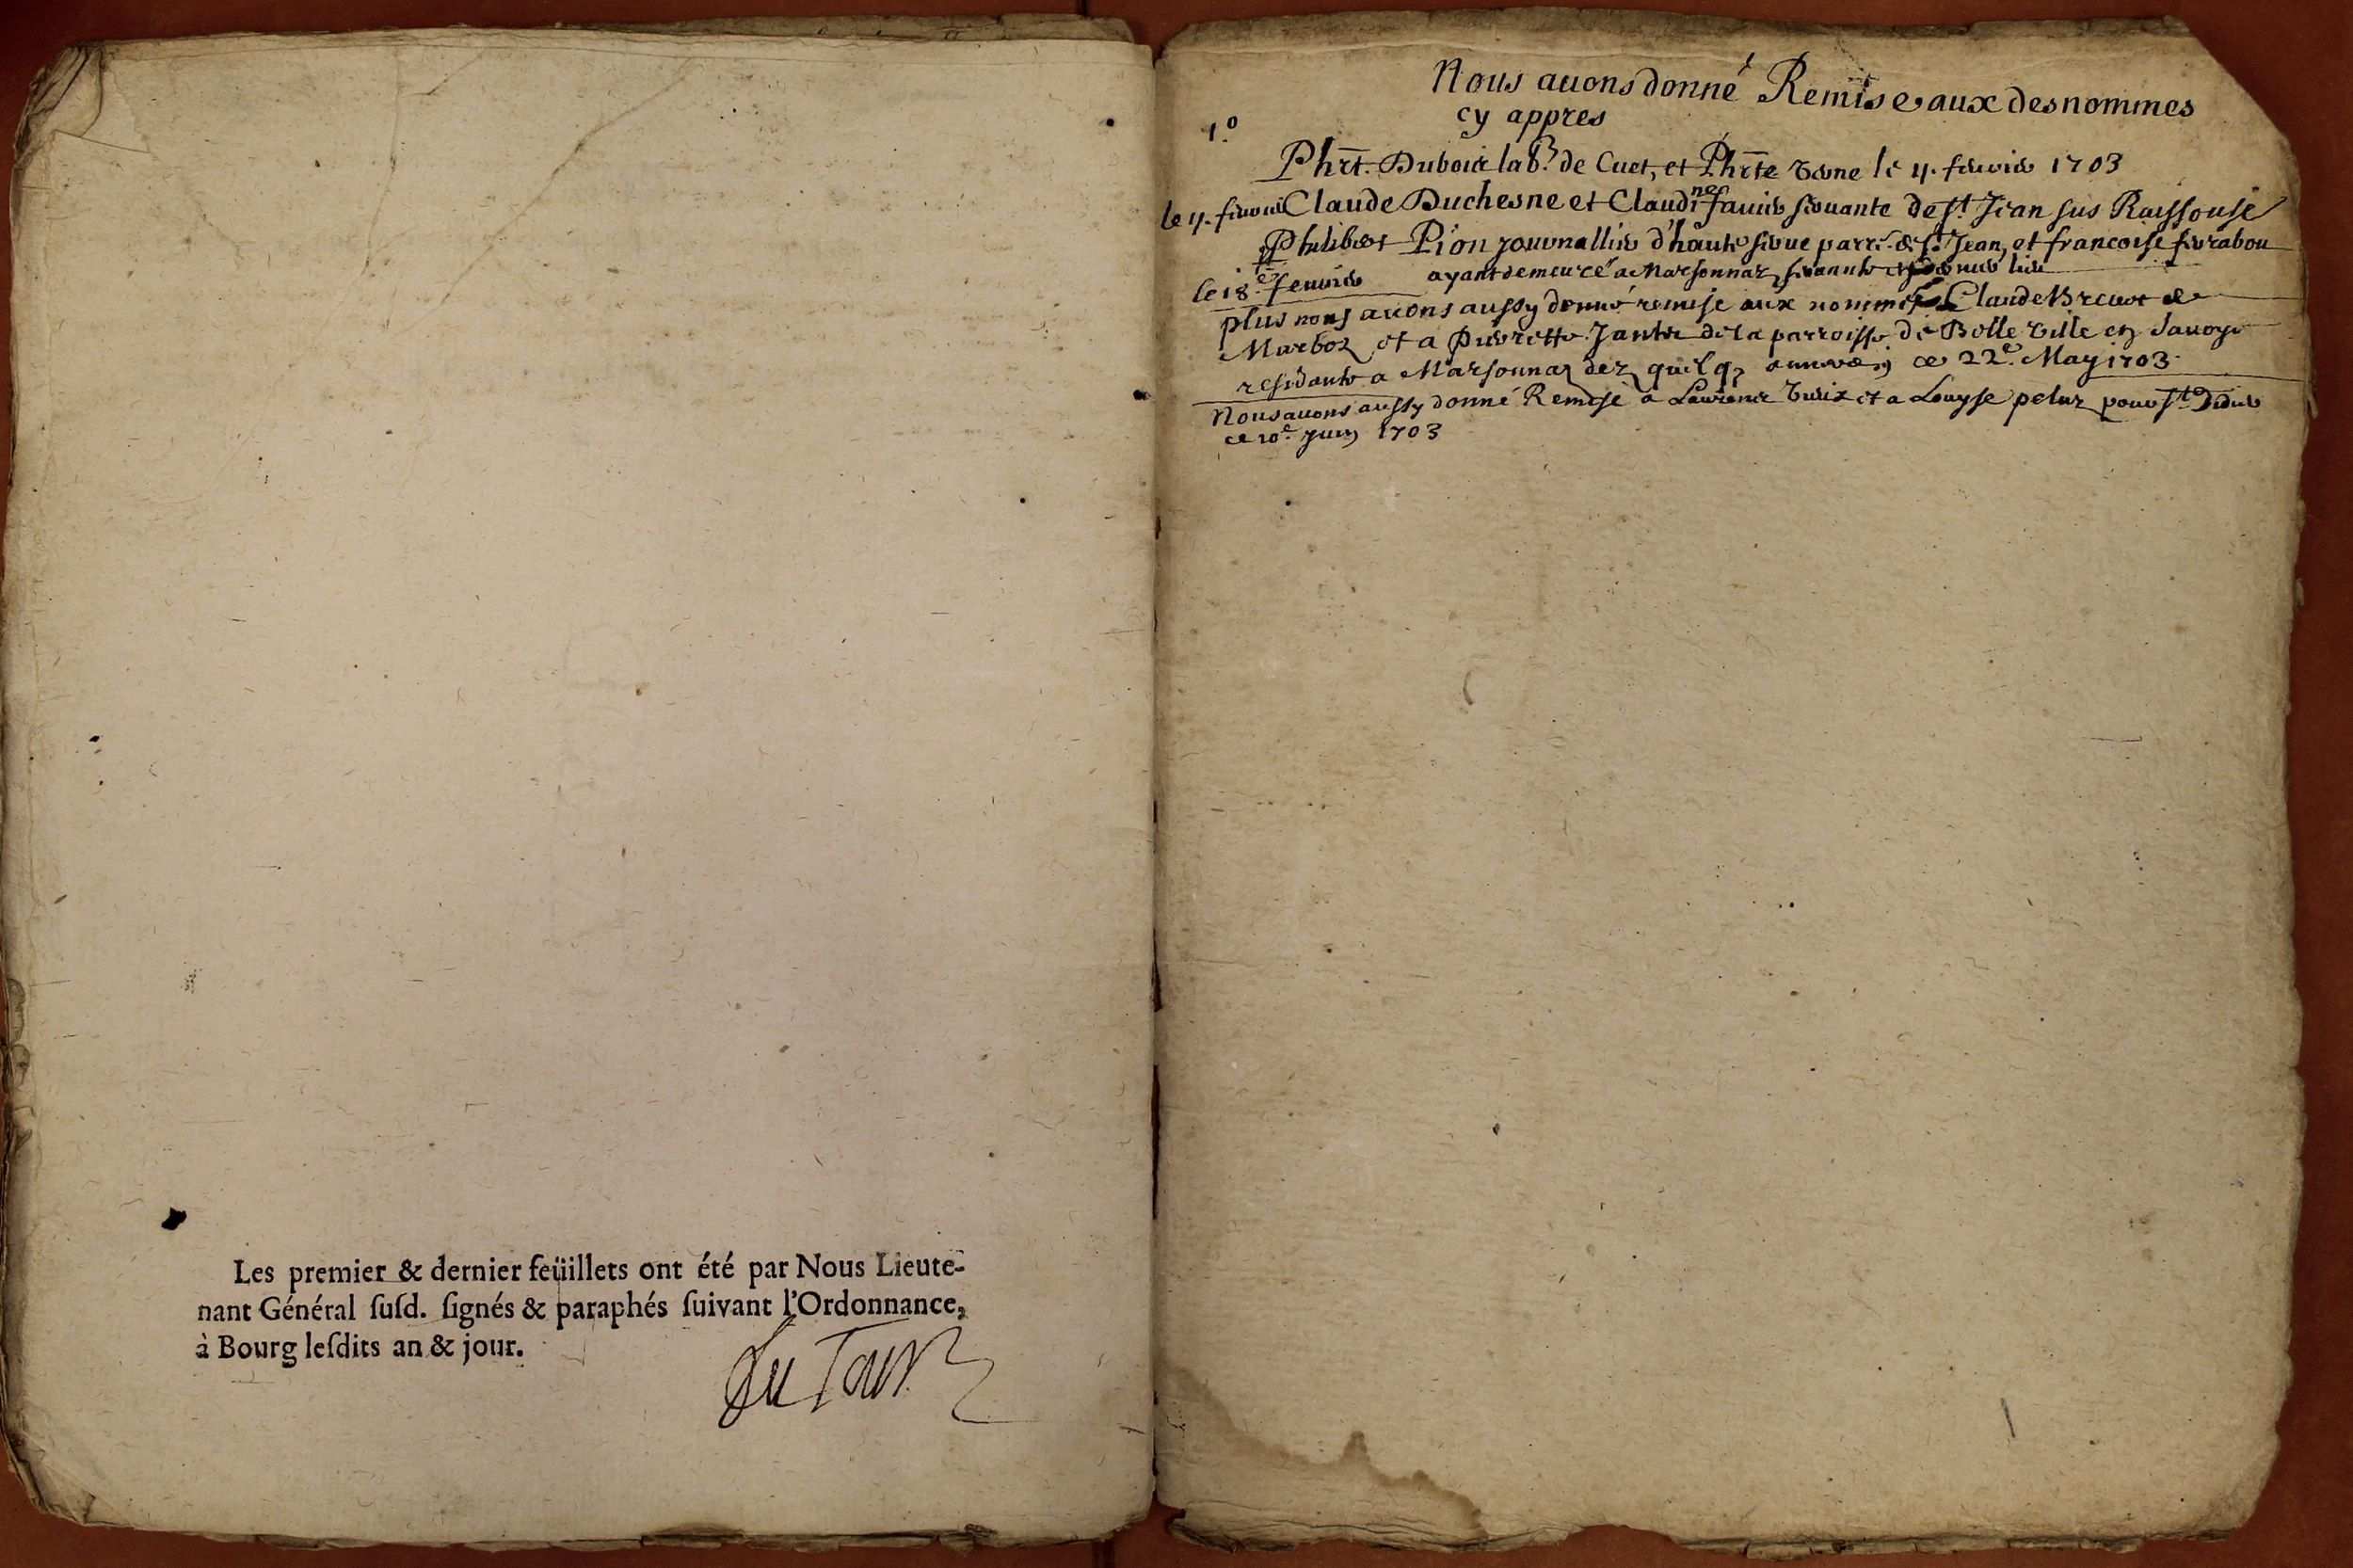 Les premier & dernier feüillets ont été par Nous Lieute-
nant Général ſuſd. ſignés & paraphés ſuivant l'Ordonnance,
à Bourg leſdits an & jour.
Nous auons donné Remise aux desnommes
cy appres
1.o
Phrt. Dubois lab.r de Cuet, et Phrte le 4. feurier 1703
le 4. feurier Claude Duchesne et Claudine seruante de st Jean sus Raissouse
Philibert Pion journallier d'haute parr. de st Jean, et francoise
le 18.e feurier ayant demeuré a Marsonnaz seruante
plus nous auons aussy donné remise aux nommes Claude de
Marboz et a Pierrette de la parroisse de Belle ville en sauoye
residante a Marsonnaz dez quelq. ce 22.e May 1703.
Nous auons aussy donné Remise a Laurence et a Louyse pour st Didier
ce 10.e juin 1703